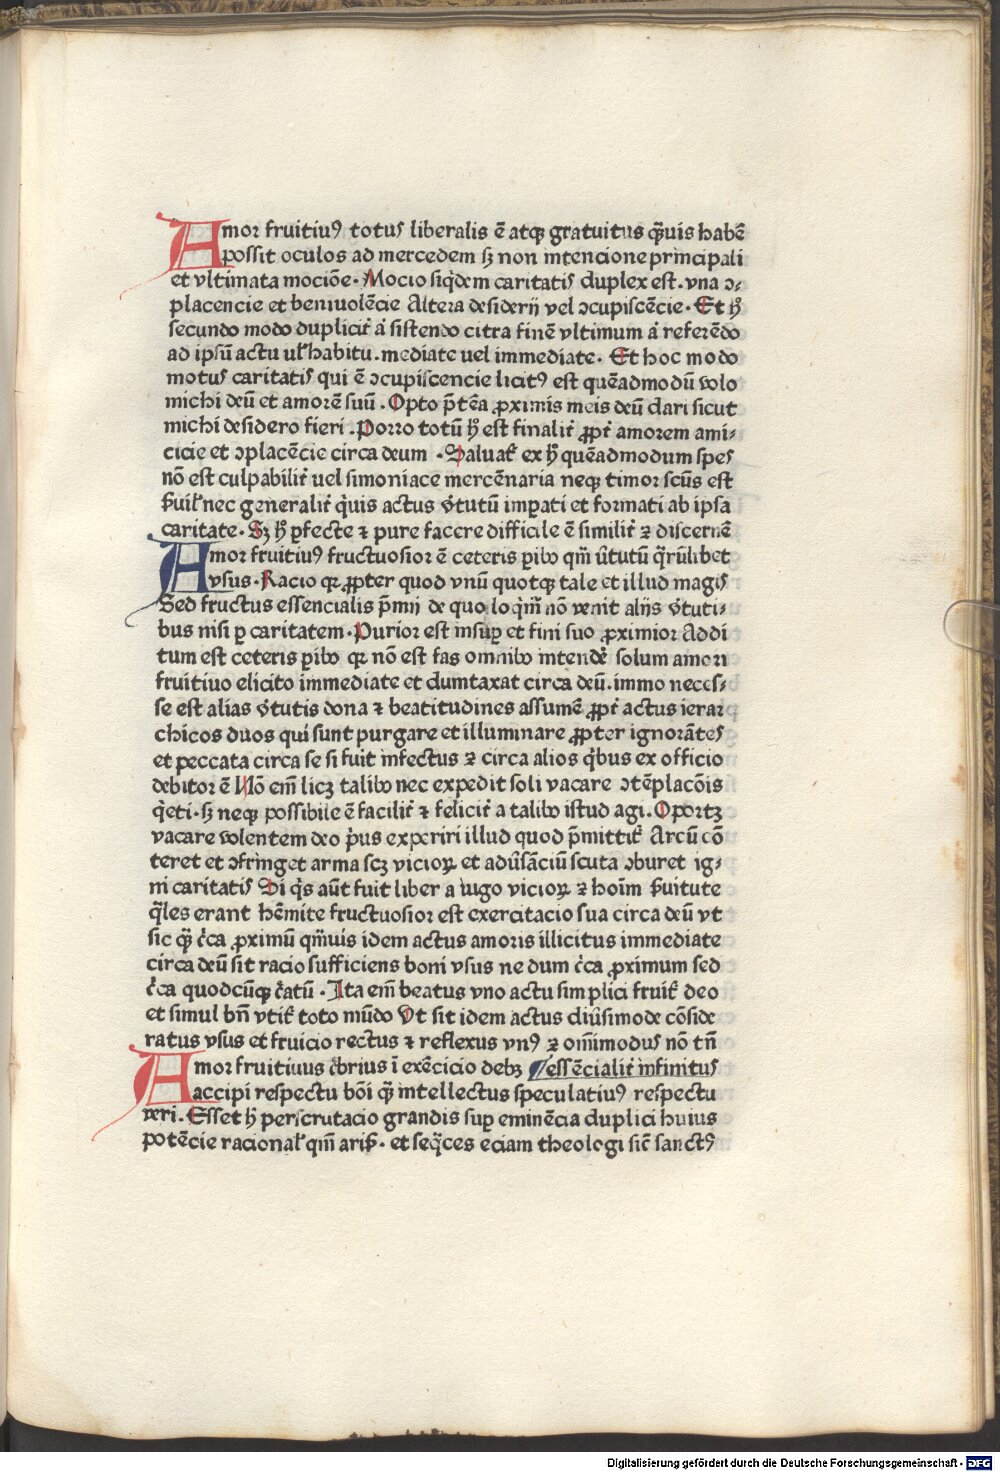 Amor fruitiuꝰ totus liberalis ē atqꝫ gratuitus q̄uis habē
possit oculos ad mercedem sꝫ non intencione principali
et vltimata mocióe. Mocio siq̇dem caritatis duplex est. vna ꝯ⸗
placencie et beniuolēcie Altera desiderij vel ꝯcupiscēcie. Et hͦ
secundo modo duplicit̄ aͥ sistendo citra finē vltimum aͥ referēdo
ad ipsū actu ul̓ habitu. mediate uel immediate. Et hoc modo
motus caritatis qui ē ꝯcupiscencie licitꝰ est quēadmodū volo
michi deū et amorē suū. Opto p̄tēa ꝓximis meis deū dari sicut
michi desidero fieri. Porro totū hͦ est finalit̄ ꝓpt̄ amorem ami⸗
cicie et ꝯplacēcie circa deum. Saluat᷑ ex hͦ quēadmodum spes
nō est culpabilit̄ uel simoniace mercēnaria neqꝫ timor scūs est
s̓uil̓ nec generalit̄ q̇uis actus v̓tutū imꝑati et formati ab ipsa
caritate. Sꝫ hͦ ꝑfecte ⁊ pure facere difficile ē similit̄ ⁊ discernē
Amor fruitiuꝰ fructuosior ē ceteris ꝑibꝰ qm̄ v̓tutū q̄rūlibet
vsus. Racio qꝛ ꝓpter quod vnū quotqꝫ tale et illud magis
Sed fructus essencialis p̄mij de quo loq̇m̄ nō venit alijs v̓tuti⸗
bus nisi ꝑ caritatem. Purior est insuꝑ et fini suo ꝓximior Addi
tum est ceteris ꝑibꝰ qꝛ nō est fas omnibꝰ intendē solum amori
fruitiuo elicito immediate et dumtaxat circa deū. immo neces⸗
se est alias v̓tutis dona ⁊ beatitudines assumē ꝓpt̄ actus ierar
chicos duos qui sunt purgare et illuminare ꝓpter ignorātes
et peccata circa se si fuit infectus ⁊ circa alios q̇bus ex officio
debitor ē Nō em̄ licꝫ talibꝰ nec expedit soli vacare ꝯtēplacōis
q̇eti. sꝫ neqꝫ possibile ē facilit̄ ⁊ felicit̄ a talibꝰ istud agi. Oportꝫ
vacare volentem deo p̓us experiri illud quod p̄mittit᷑ Arcū cō
teret et ꝯfringet arma scꝫ vicioꝝ et adūsanciū scuta ꝯburet ig⸗
ni caritatis Si q̇s aūt fuit liber a iugo vicioꝝ ⁊ hoīm s̓uitute
q̄les erant h̓emite fructuosior est exercitacio sua circa deū vt
sic q̄ᷓ c̓ca ꝓximū qm̄uis idem actus amoris illicitus immediate
circa deū sit racio sufficiens boni vsus ne dum c̓ca ꝓximum sed
c̓ca quodcūqꝫ c̓atū. Ita em̄ beatus vno actu simplici fruit᷑ deo
et simul bn̄ vtit᷑ toto mūdo Vt sit idem actus diūsimode cōside
ratus vsus et fruicio rectus ⁊ reflexus vnꝰ ⁊ oīmodus nō tn̄
Amor fruitiuus c̓brius ī exēcicio debꝫ essēcialit̄ infinitus
accipi respectu bōi q̄ᷓ intellectus speculatiuꝰ respectu
veri. Esset hͦ perscrutacio grandis suꝑ eminēcia duplici huius
potēcie racional̓ qm̄ arip̄. et seq̄ces eciam theologi sic̄ sanctꝰ
Digitalisierung gefördert durch die Deutsche Forschungsgemeinschaft - DFG